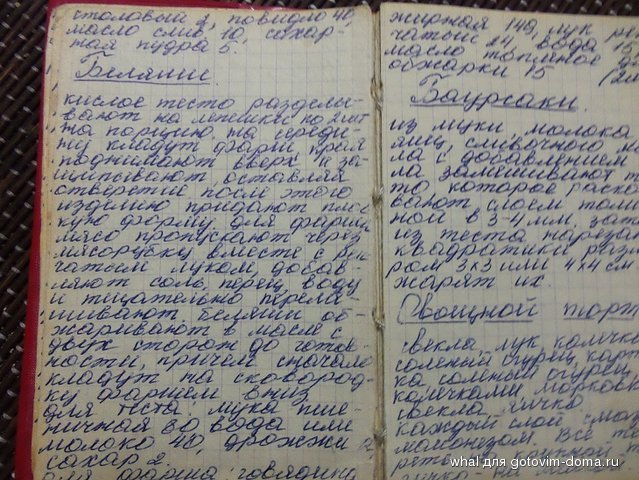 столовый 2, повидло 40,
масло слив. 10, сахар-
ная пудра 5.
Беляши.
кислое тесто разделы-
вают на лепешки по 2 шт
на порцию, на середи-
ну кладут фарш края
поднимают вверх и за-
щипывают, оставляя
отверстие после этого
изделию придают плос-
кую форму. для фарша
мясо пропускают через
мясорубку вместе с реп-
чатым луком, добав-
ляют соль, перец, воду
и тщательно переме-
шивают беляши об-
жаривают в масле с
двух сторон до готов-
ности, причем сначала
кладут на сковород-
ку фаршем вниз
для теста. мука пше-
ничная 80 вода или
молоко 40, дрожжи 2
сахар 2.
для фарша говядина
жирная 140, лук реп
чатый 21, вода 15
масло топленое для
обжарки 15
Баурсаки.
из муки, молока
яиц, сливочного ма
ла с добавлением
ла замешивают т
то которое раска
вают слоем толщи
ной в 3-4 мм, зат
из теста нарезаю
квадратики разм
ром 3х3 или 4х4 см
жарят их.
Овощной торт
свекла лук колечка
соленый огурец, карт
ка соленый огурец,
колечками морковь
свекла, яичко.
каждый слой смаз
майонезом. Все те
whal для gotovim-doma.ru